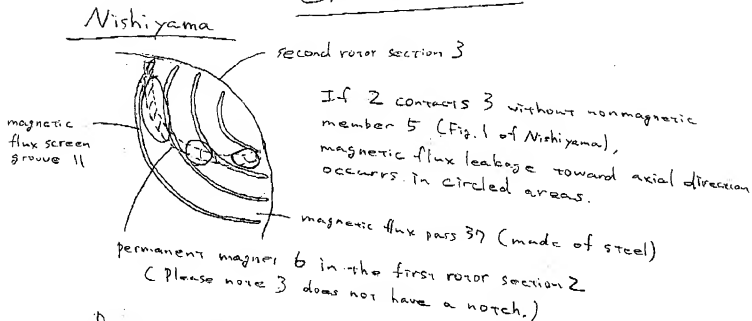 Nishiyama
second rotor section 3
If 2 contacts 3 without nonmagnetic
member 5 (Fig. 1 of Nishiyama),
magnetic flux leakage toward axial direction
occurrs in circled areas.
magnetic
flux screen
groove 11
magnetic flux pass 37 (made of steel)
permanent magnet 6 in the first rotor section 2
(Please note 3 does not have a notch.)